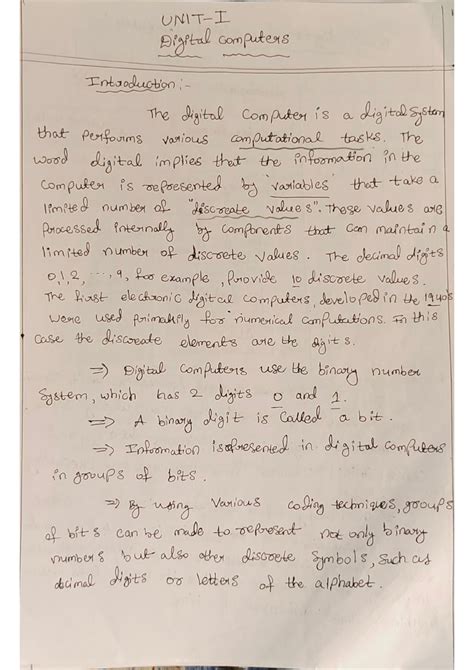 UNIT-I
Digital Computers
Introduction:-
The digital Computer is a digital System
that performs various computational tasks. The
word digital implies that the information in the
Computer is represented by variables that take a
limited number of "discreate values". These values are
processed internally by components that can maintain a
limited number of discrete values. The decimal digits
0,1,2, ..., 9, for example, provide 10 discrete values.
The first electronic digital computers, developed in the 1940's
were used primarily for numerical computations. In this
case the discreate elements are the digits.
=> Digital Computers use the binary number
System, which has 2 digits 0 and 1.
=> A binary digit is Called a bit.
=> Information is represented in digital computers
in groups of bits.
=> By using Various coding techniques, groups
of bits can be made to represent not only binary
numbers but also other discrete Symbols, Such as
decimal digits or letters of the alphabet.